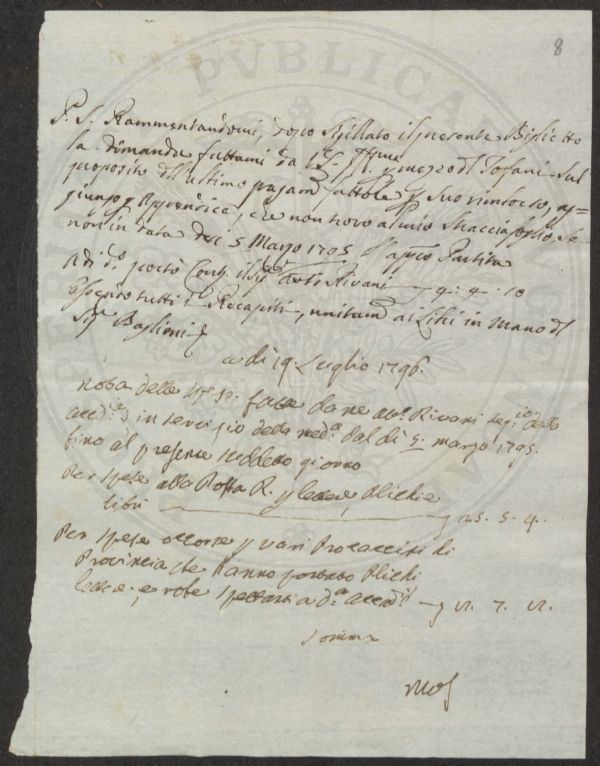 8
P. S. Rammentandomi, dopo sigillato il presente Biglietto
la dimanda fattami da V. S. Ill.ma p mezzo del Tofani sul
proposito dell'ultimo pagam.to fattole p suo rimborso, ag=
giungo p Appendice, che non trovo al mio Stracciafoglio, se
non in data del 5 Marzo 1795 l'appco Partita
A di d.o portò Cont. il Sig.r Ant.o Rivani 9. 4. 10
Essendo tutti i Recapiti, unitam. ai Libri in mano del
Sig.r Baglioni
a di 19. Luglio 1796.
Nota delle spese fatte da me Ant.o Rivani seg.io della
accad.a in servizio della med.a dal di 5. marzo 1795.
fino al presente suddetto giorno
Per spese alla Posta p lettere, Plichi e
libri 25. 5. 4.
Per spese occorse p vari Procaccini di
Provincia che hanno portato Plichi
lettere, e robe spettanti a d.a accad.a
Somma